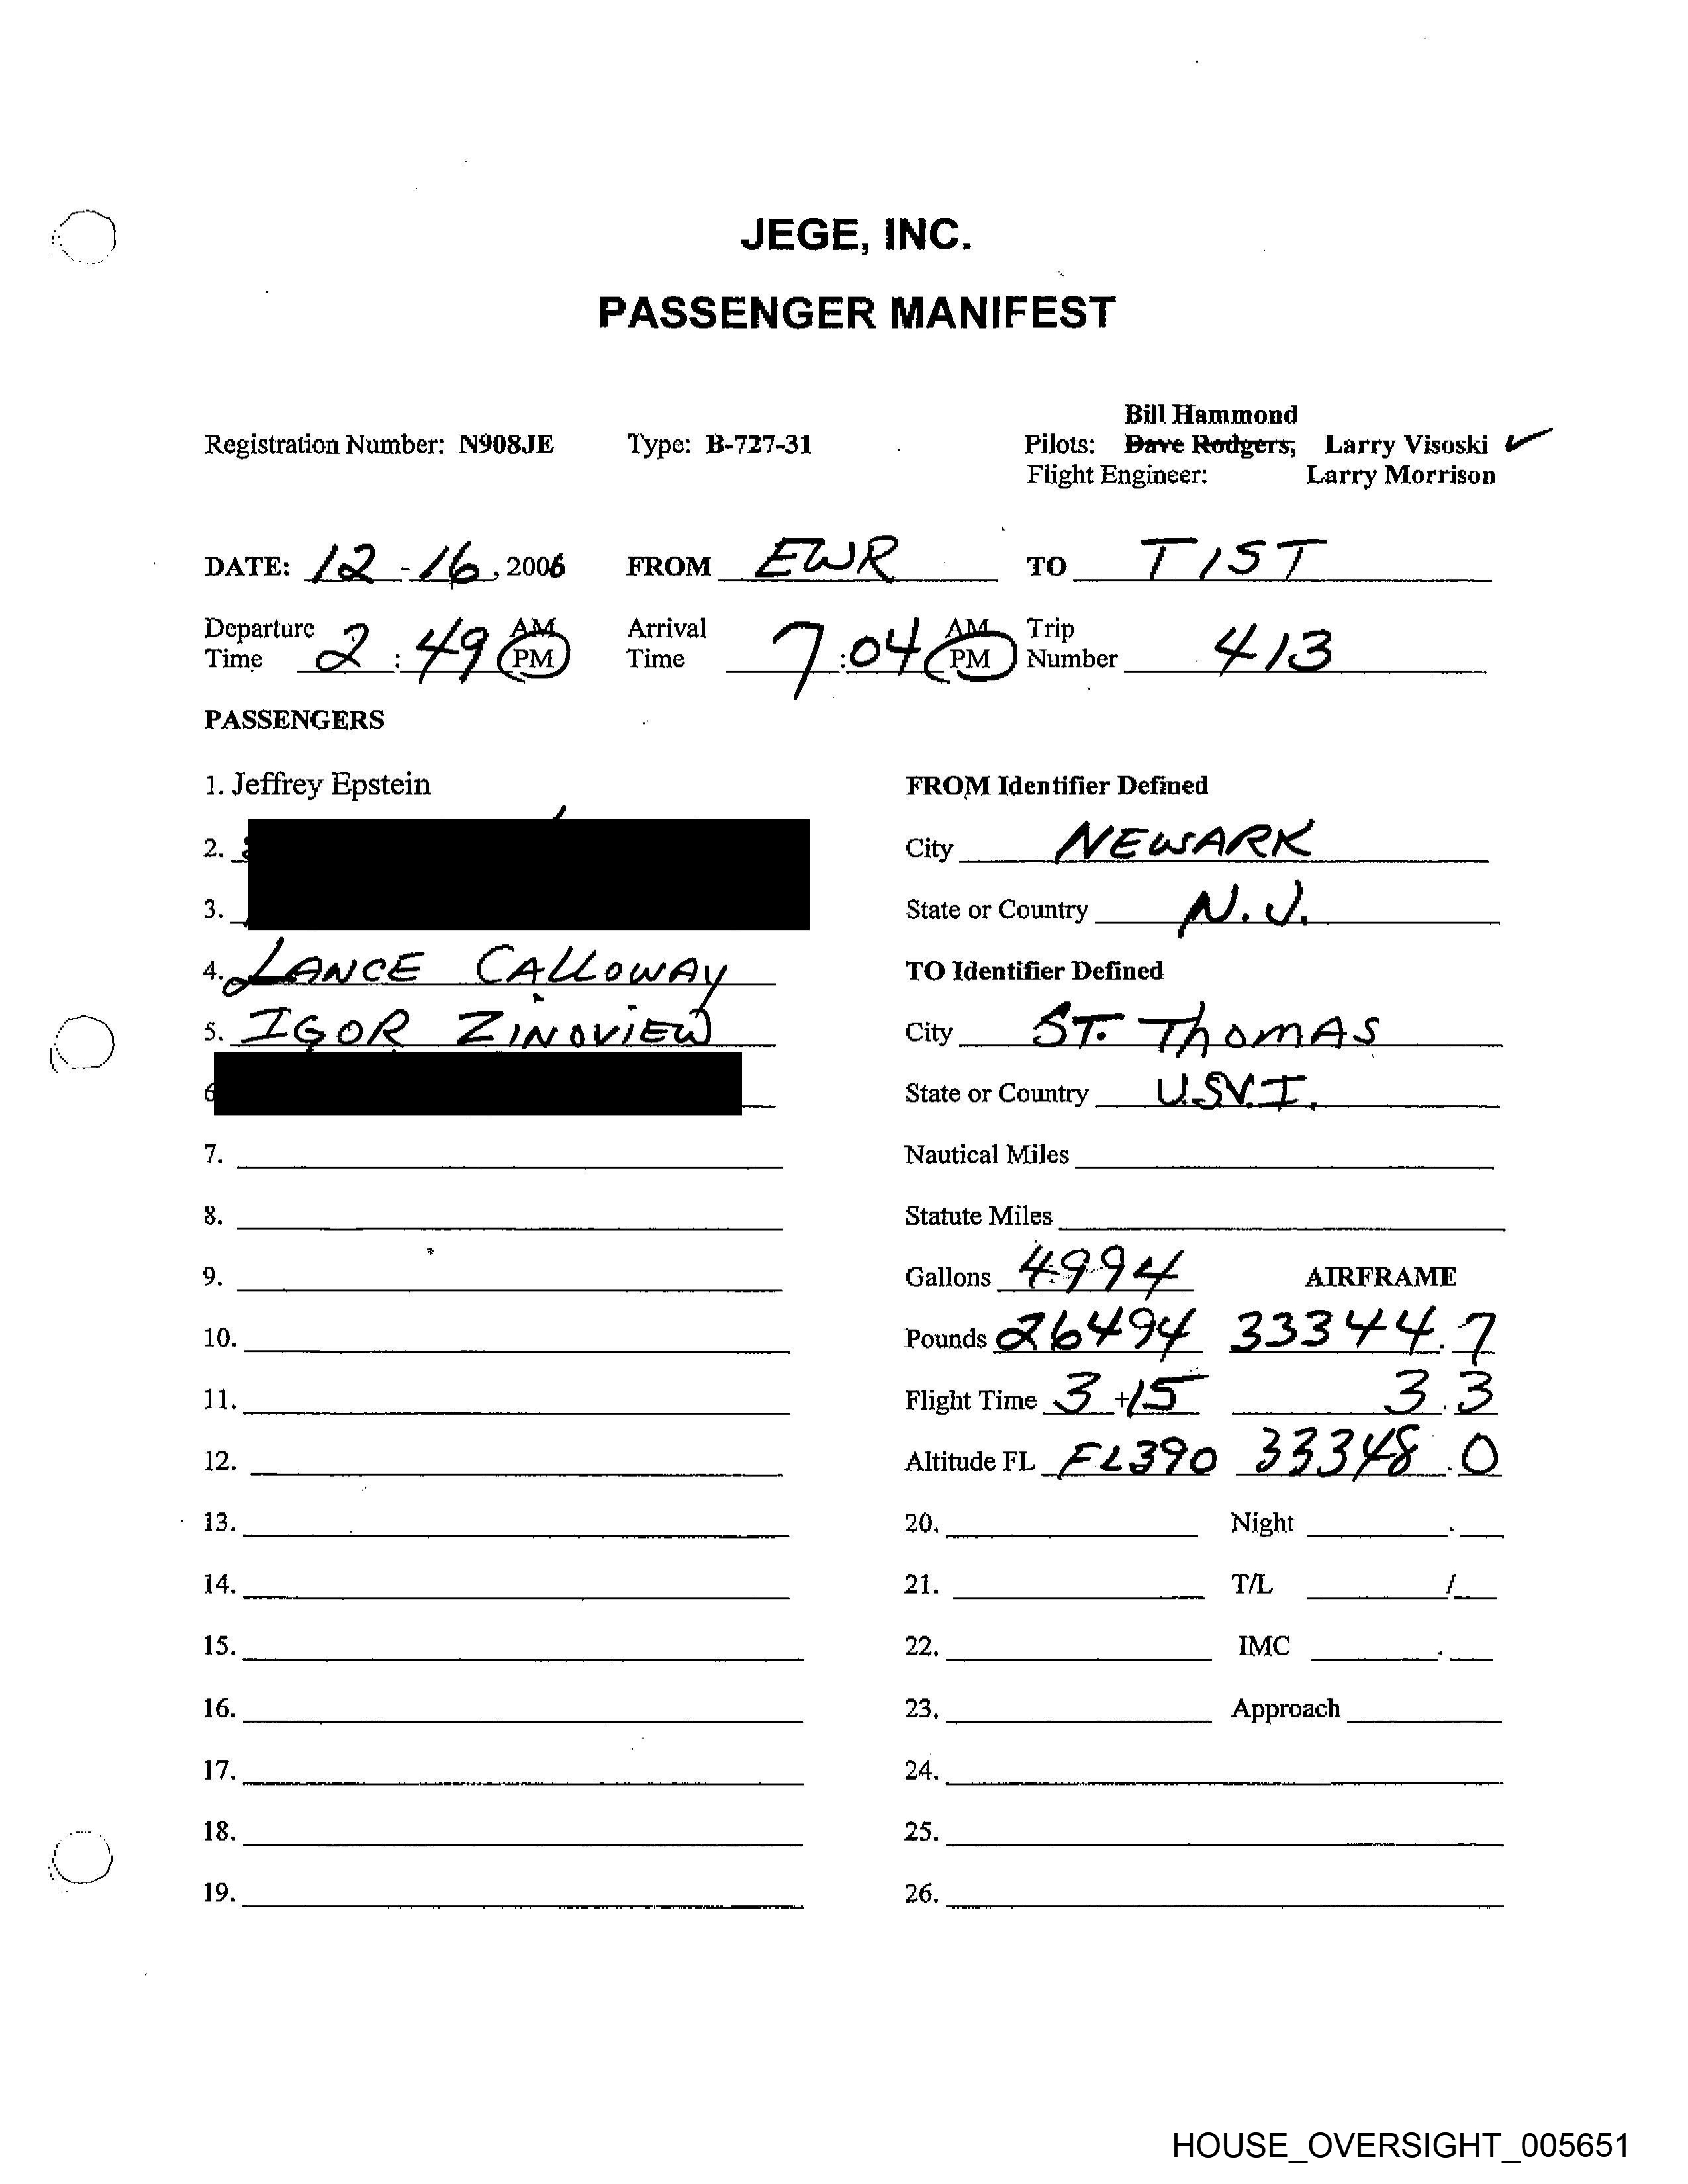 JEGE, INC.
PASSENGER MANIFEST
Bill Hammond
Registration Number: N908JE Type: B-727-31 Pilots: Dave Rodgers, Larry Visoski ✓
Flight Engineer: Larry Morrison
DATE: 12-16, 2006 FROM EWR TO TIST
Departure Time 2:49 AM PM Arrival Time 7:04 AM PM Trip Number 413
PASSENGERS
1. Jeffrey Epstein FROM Identifier Defined
2. City NEWARK
3. State or Country N.J.
4. LANCE CALLOWAY TO Identifier Defined
5. IGOR ZINOVIEW City ST. ThOMAS
6 State or Country U.S.V.I.
7. Nautical Miles
8. Statute Miles
9. Gallons 4994 AIRFRAME
10. Pounds 26494 33344.7
11. Flight Time 3+15 3.3
12. Altitude FL FL390 33348.0
13. 20. Night .
14. 21. T/L /
15. 22. IMC .
16. 23. Approach
17. 24.
18. 25.
19. 26.
HOUSE_OVERSIGHT_005651